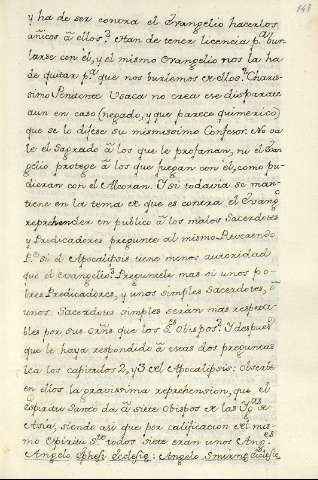 148
y ha de ser contra el Evangelio hacerlos
añicos â ellos? Han de tener licencia p.ª bur-
larse con èl, y el mismo Evangelio nos la ha
de quitar p.ª que nos burlemos de ellos? Charis-
simo Penitente Usaca no crea ese disparate
aun en caso (negado, y que parece quimerico)
que se lo dijese su mismissimo Confesor. No va-
le el Sagrado â los que le profanan, ni el Evan-
gelio protege â los que juegan con èl, como pu-
dieran con el Alcoran. Y si todavia se man-
tiene en la tema de que es contra el Evang.º
reprehender en publico â los malos Sacerdotes
y Predicadores pregunte al mismo Reverendo
P.e si el Apocalipsis tiene menos autoridad
que el evangelio? Preguntele mas si unos po-
bres Predicadores, y unos simples Sacerdotes, ô
unos Sacerdotes simples seràn mas respeta-
bles por sus que los S.es Obispos? Y despues
que le haya respondido â estas dos preguntas
lea los capitulos 2, y 3 del Apocalipsis: Observe
en ellos la gravissima reprehension, que el
Espiritu Santo da â siete Obispos de las Ig.as de
Asia, siendo asi que por calificacion del mis-
mo Espiritu S.to todos siete eran unos Ang.es
Angelo Ephesi Ecclesiæ: Angelo Smirnæ Ecclesiæ